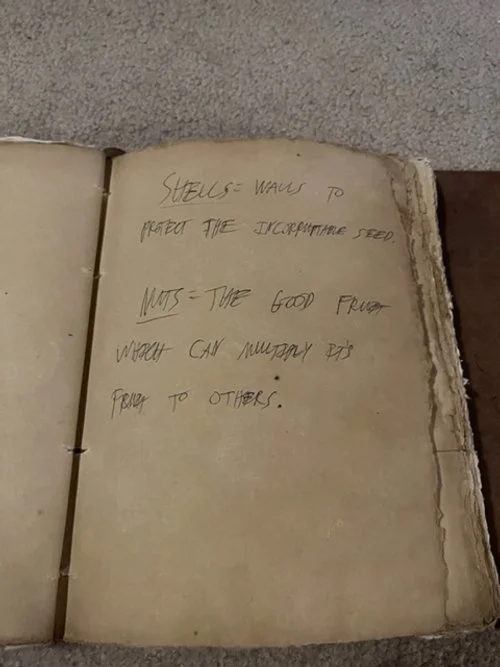 SHELLS = WALLS TO
PROTECT THE INCORRUPTIBLE SEED.
NUTS = THE GOOD FRUIT
WHICH CAN MULTIPLY IT'S
FRUIT TO OTHERS.